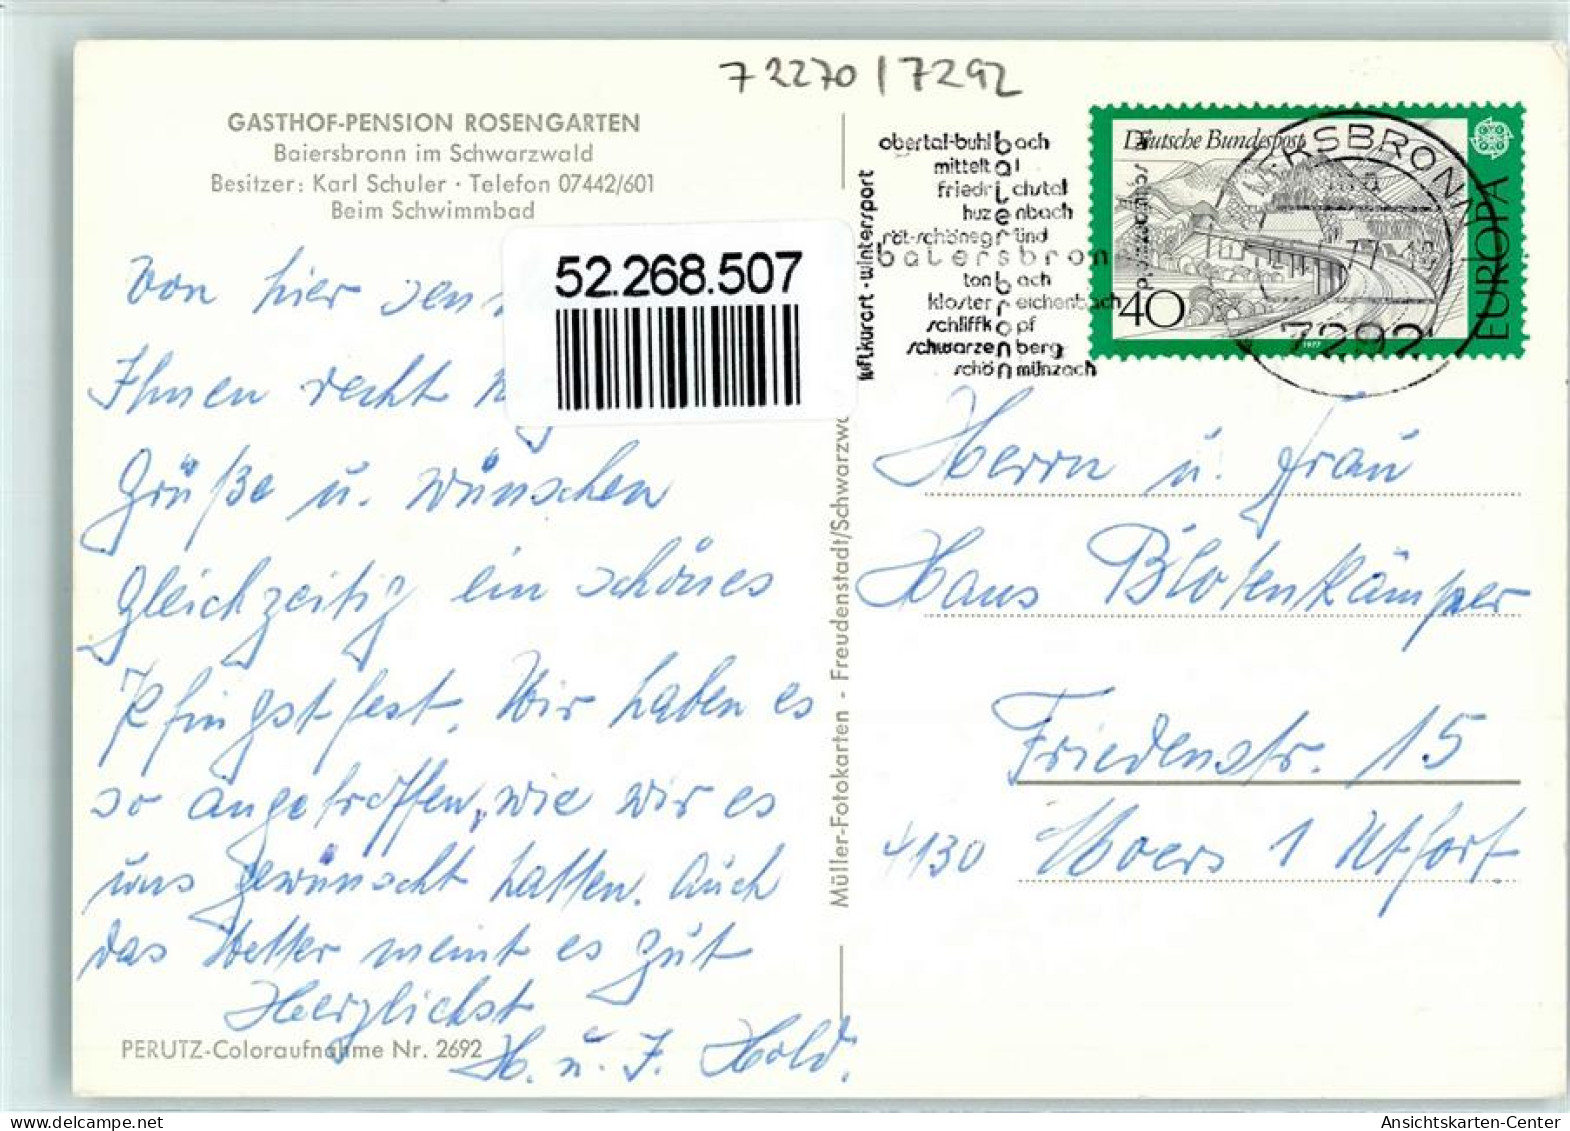 72270/7292
GASTHOF-PENSION ROSENGARTEN
Baiersbronn im Schwarzwald
Besitzer: Karl Schuler · Telefon 07442/601
Beim Schwimmbad
52.268.507
Von hier
Ihnen recht
Grüße u. wünschen
gleichzeitig ein schönes
Pfingstfest. Wir haben es
so angetroffen, wie wir es
uns gewünscht hatten. Auch
das Wetter meint es gut
Herzlichst
H. u. F. Hold.
PERUTZ-Coloraufnahme Nr. 2692
Müller-Fotokarten - Freudenstadt/Schwarzw
luftkurort · wintersport
obertal-buhlbach
mitteltal
friedrichstal
huzenbach
röt-schönegründ
baiersbron
tonbach
kloster reichenbach
schliffkopf
schwarzenberg
schönmünzach
Deutsche Bundespost
40
EUROPA
1977
BAIERSBRONN
77
7292
Herrn u. Frau
Hans Blotenkämper
Friedenstr. 15
4130 Moers 1 Utfort
Ansichtskarten-Center
delcampe.net